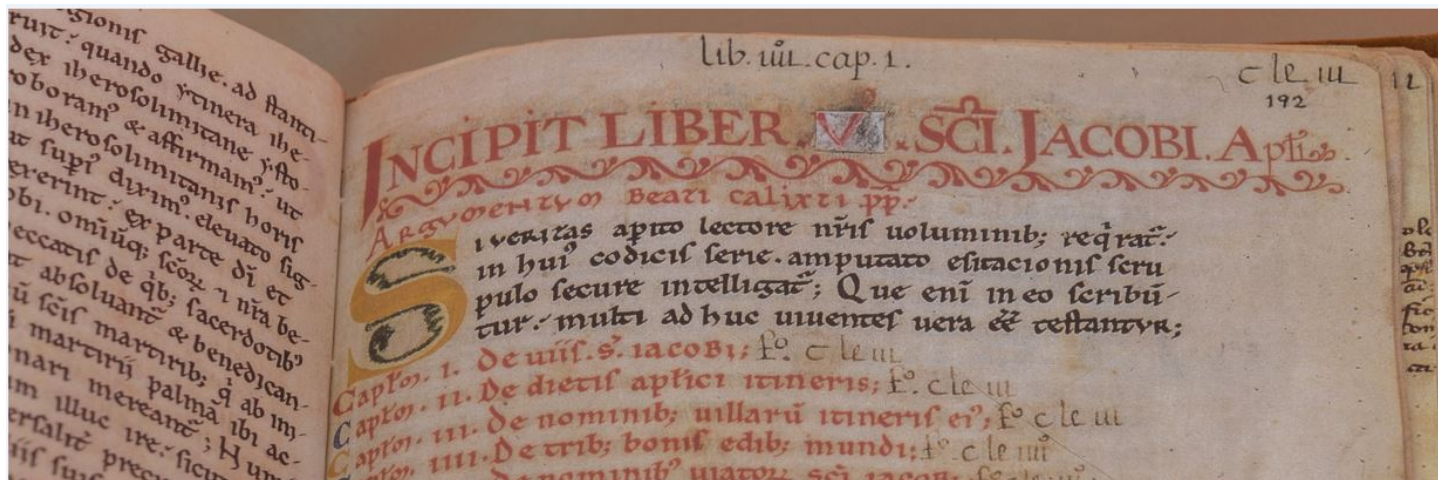 gionis gallie. ad stanti-
ruit: quando ytinera ihe-
dex iherosolimitane ysto-
roboramꝰ & affirmamꝰ: ut
n iherosolimitanis horis
ut supᷓ diximꝰ. eleuato sig-
exerint: ex parte dī et
obi. omiūq; scōꝝ ⁊ nr̄a be-
eccatis de q̇b; sacerdotibꝰ
t absoluant̄ & benedican-
ū scīs martirib; q̇ ab im-
martirii palmā ibi ac-
nari mereant̄; H
m illuc ire: sicut
lib. iiii. cap. 1.
c le iii
192
INCIPIT LIBER .V. SCĪ. JACOBI. Apłi.
Argumentum Beati calixti pp̄.
Si ueritas apito lectore nr̄is uoluminib; reqͥrat̄:
in huiꝰ codicis serie. amputato esitacionis scru
pulo secure intelligat̄; Que enī in eo scribū-
tur: multi ad huc uiuentes uera eē̄ testantur;
Capłm. i. De uiis. s̄. iacobi; fº. c le iii
Capłm. ii. De dietis apłici itineris; fº. c le iii
Capłm. iii. De nominib; uillarū itineris eiꝰ; fº c le iii
Capłm. iiii. De trib; bonis edib; mundi; fº. c le iiii
De nominibꝰ uiatoꝝ scī iacobi;